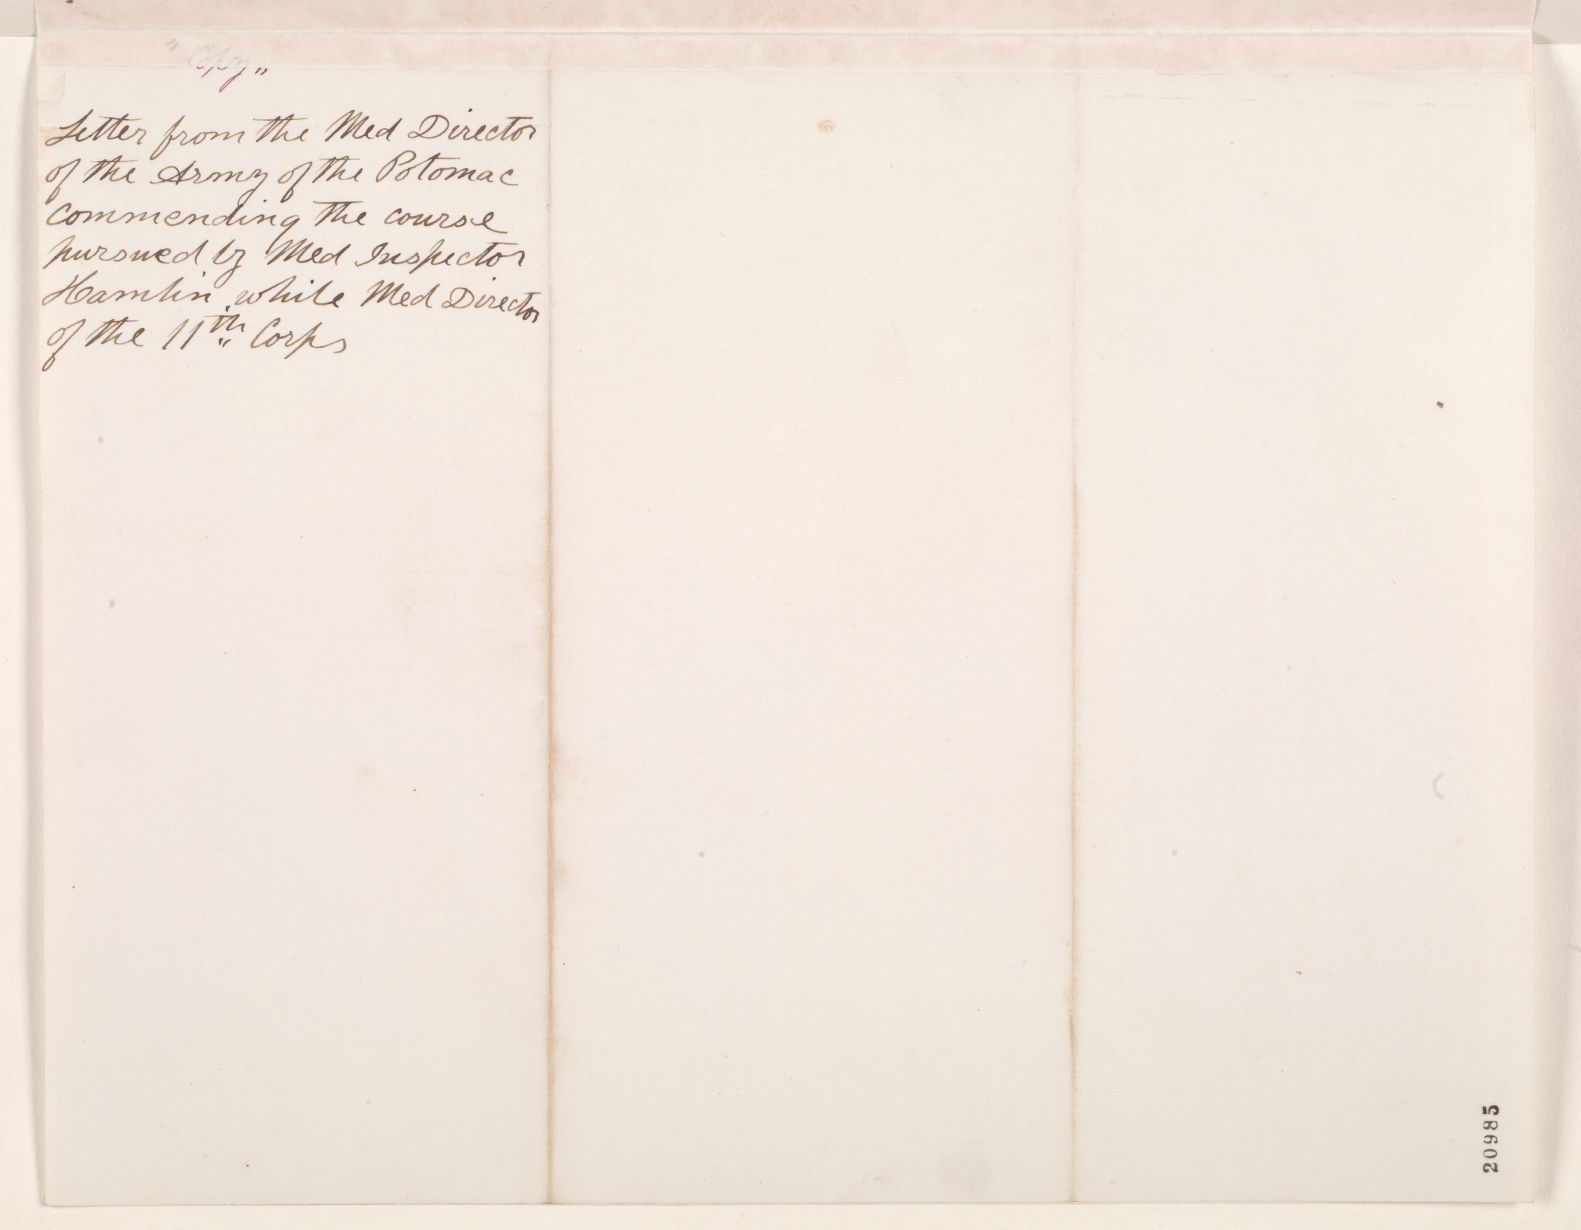 "Copy"
Letter from the Med Director
of the Army of the Potomac
commending the course
pursued by Med Inspector
Hamlin while Med Director
of the 11th Corps
20985